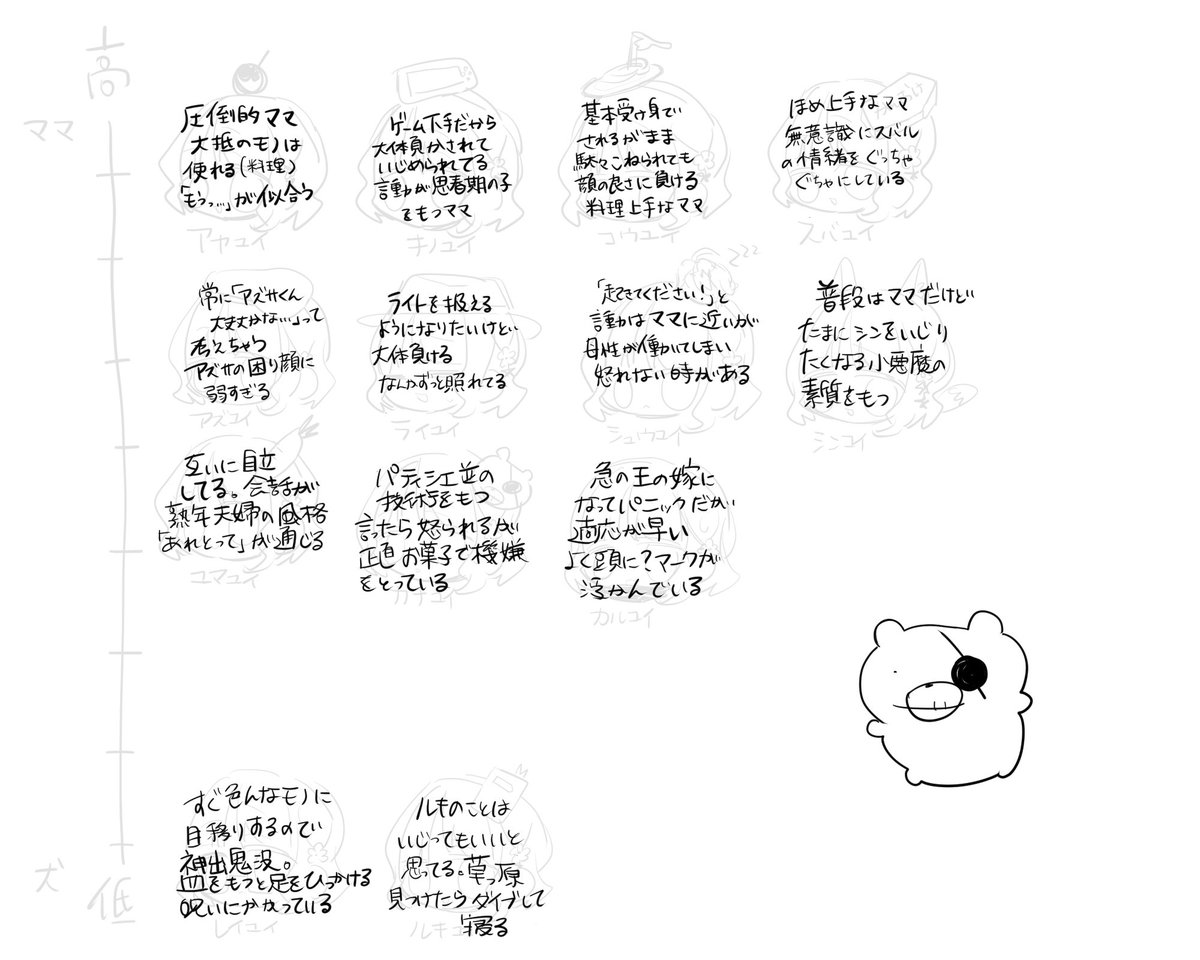 高
ママ
圧倒的ママ
大抵のモノは
使れる(料理)
「もうっ…」が似合う
アヤユイ
ゲーム下手だから
大体負かされて
いじめられてる
言動が思春期の子
をもつママ
キノユイ
基本受け身で
されるがまま
駄々こねられても
顔の良さに負ける
料理上手なママ
コウユイ
ほめ上手なママ
無意識にスバル
の情緒をぐっちゃ
ぐちゃにしている
スバユイ
常に「アズサくん
大丈夫かな…」って
考えちゃう
アズサの困り顔に
弱すぎる
アズユイ
ライトを扱える
ようになりたいけど
大体負ける
なんかずっと照れてる
ライユイ
zzz
「起きてください!」と
言動はママに近いが
母性が働いてしまい
怒れない時がある
シュウユイ
普段はママだけど
たまにシンをいじり
たくなる小悪魔の
素質をもつ
シンユイ
互いに自立
してる。会話が
熟年夫婦の風格
「あれとって」が通じる
ユマユイ
パティシエ並の
技術をもつ
言ったら怒られるが
正直お菓子で機嫌
をとっている
カナユイ
急の王の嫁に
なってパニックだが
適応が早い
よく頭に?マークが
浮かんでいる
カルユイ
犬
低
すぐ色んなモノに
目移りするので
神出鬼没。
皿をもつと足をひっかける
呪いにかかっている
レイユイ
ルキのことは
いじってもいいと
思ってる。草っ原
見つけたらダイブして
寝る
ルキユ